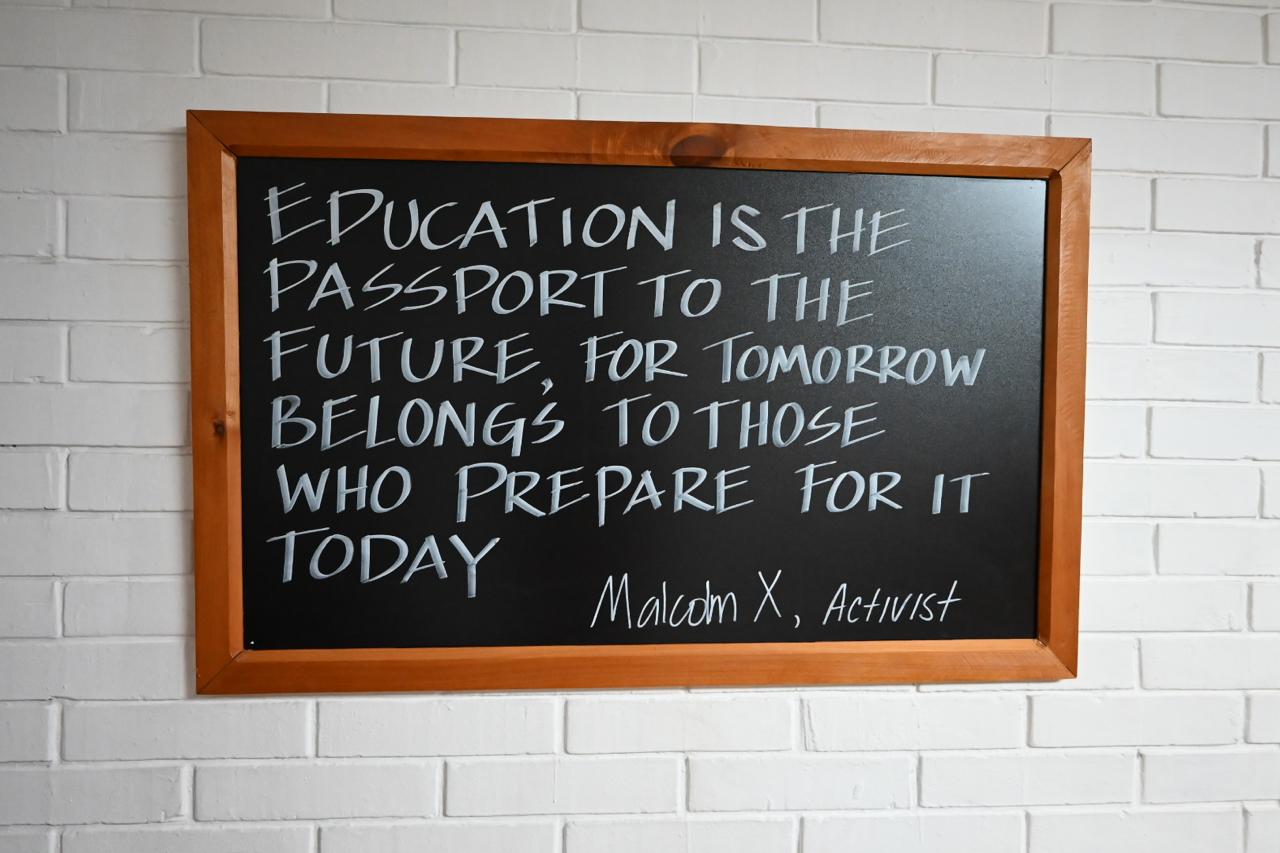 EDUCATION IS THE
PASSPORT TO THE
FUTURE, FOR TOMORROW
BELONGS TO THOSE
WHO PREPARE FOR IT
TODAY
Malcolm X, Activist